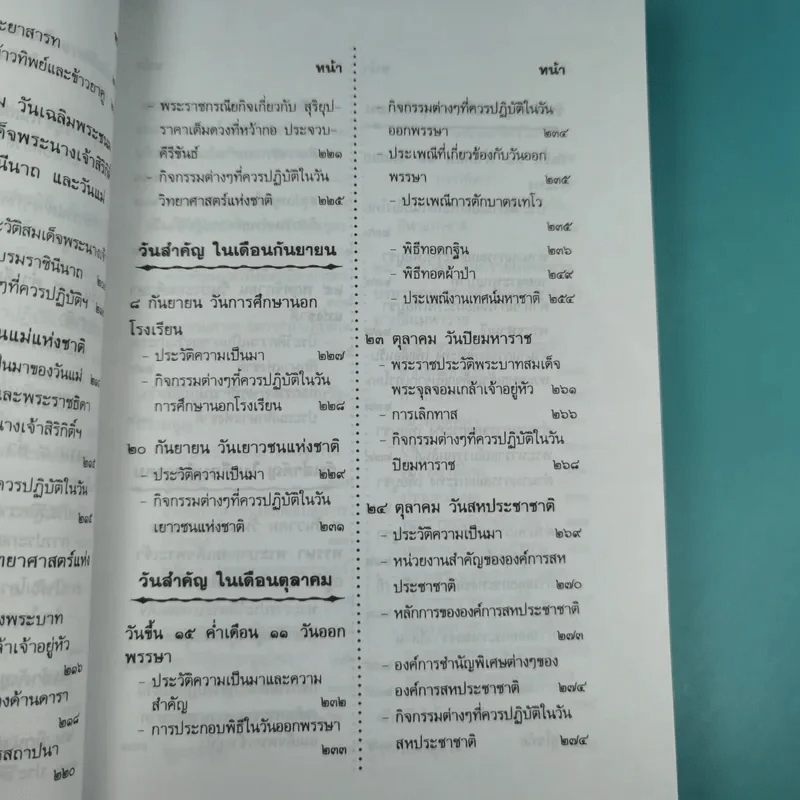 ะยาสารท
้าวทิพย์และข้าวยาคู
ม วันเฉลิมพระชน
ด็จพระนางเจ้าสิริกิ
นีนาถ และวันแม่
ะวัติสมเด็จพระนางเจ้
บรมราชินีนาถ
ๆที่ควรปฏิบัติฯ
นแม่แห่งชาติ
ป็นมาของวันแม่
และพระราชธิดา
นางเจ้าสิริกิติ์ฯ
๒๑๕
ควรปฏิบัติในวัน
๒๑๕
ทยาศาสตร์แห่ง
งพระบาท
ล้าเจ้าอยู่หัว
๒๑๖
งด้านดารา
๒๑๘
รสถาปนา
๒๒๐
หน้า
- พระราชกรณียกิจเกี่ยวกับ สุริยุป-
ราคาเต็มดวงที่หว้ากอ ประจวบ-
คีรีขันธ์ ๒๒๑
- กิจกรรมต่างๆที่ควรปฏิบัติในวัน
วิทยาศาสตร์แห่งชาติ ๒๒๕
วันสำคัญ ในเดือนกันยายน
๘ กันยายน วันการศึกษานอก
โรงเรียน
- ประวัติความเป็นมา ๒๒๗
- กิจกรรมต่างๆที่ควรปฏิบัติในวัน
การศึกษานอกโรงเรียน ๒๒๘
๒๐ กันยายน วันเยาวชนแห่งชาติ
- ประวัติความเป็นมา ๒๒๙
- กิจกรรมต่างๆที่ควรปฏิบัติในวัน
เยาวชนแห่งชาติ ๒๓๑
วันสำคัญ ในเดือนตุลาคม
วันขึ้น ๑๕ ค่ำเดือน ๑๑ วันออก
พรรษา
- ประวัติความเป็นมาและความ
สำคัญ ๒๓๒
- การประกอบพิธีในวันออกพรรษา
๒๓๓
หน้า
- กิจกรรมต่างๆที่ควรปฏิบัติในวัน
ออกพรรษา ๒๓๔
- ประเพณีที่เกี่ยวข้องกับวันออก
พรรษา ๒๓๕
- ประเพณีการตักบาตรเทโว
๒๓๕
- พิธีทอดกฐิน ๒๓๖
- พิธีทอดผ้าป่า ๒๔๙
- ประเพณีงานเทศน์มหาชาติ ๒๕๔
๒๓ ตุลาคม วันปิยมหาราช
- พระราชประวัติพระบาทสมเด็จ
พระจุลจอมเกล้าเจ้าอยู่หัว ๒๖๑
- การเลิกทาส ๒๖๖
- กิจกรรมต่างๆที่ควรปฏิบัติในวัน
ปิยมหาราช ๒๖๘
๒๔ ตุลาคม วันสหประชาชาติ
- ประวัติความเป็นมา ๒๖๙
- หน่วยงานสำคัญขององค์การสห
ประชาชาติ ๒๗๐
- หลักการขององค์การสหประชาชาติ
๒๗๓
- องค์การชำนัญพิเศษต่างๆของ
องค์การสหประชาชาติ ๒๗๔
- กิจกรรมต่างๆที่ควรปฏิบัติในวัน
สหประชาชาติ ๒๗๔